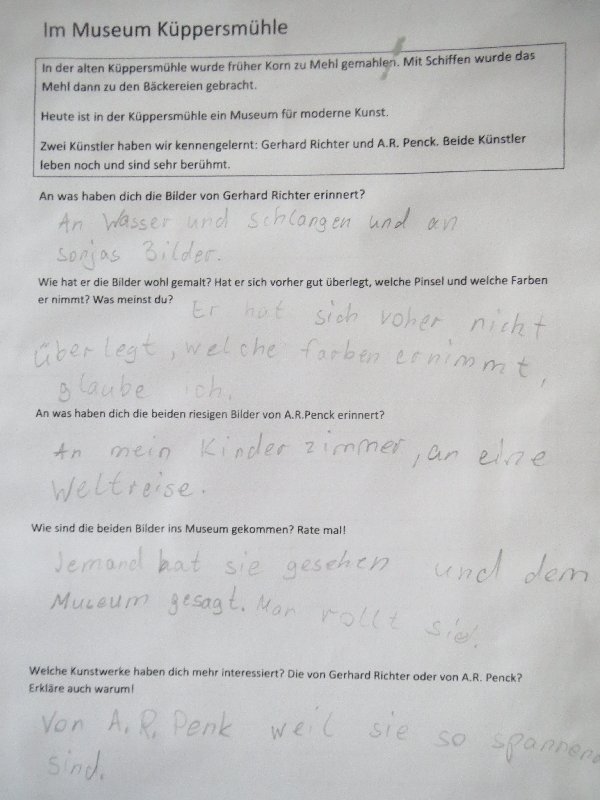 Im Museum Küppersmühle
In der alten Küppersmühle wurde früher Korn zu Mehl gemahlen. Mit Schiffen wurde das
Mehl dann zu den Bäckereien gebracht.
Heute ist in der Küppersmühle ein Museum für moderne Kunst.
Zwei Künstler haben wir kennengelernt: Gerhard Richter und A.R. Penck. Beide Künstler
leben noch und sind sehr berühmt.
An was haben dich die Bilder von Gerhard Richter erinnert?
An Wasser und schlangen und an
sonjas Bilder.
Wie hat er die Bilder wohl gemalt? Hat er sich vorher gut überlegt, welche Pinsel und welche Farben
er nimmt? Was meinst du?
Er hat sich voher nicht
überlegt, welche farben ernimmt,
glaube ich.
An was haben dich die beiden riesigen Bilder von A.R.Penck erinnert?
An mein Kinderzimmer, an eine
Weltreise.
Wie sind die beiden Bilder ins Museum gekommen? Rate mal!
Jemand hat sie gesehen und dem
Museum gesagt. Man rollt sie.
Welche Kunstwerke haben dich mehr interessiert? Die von Gerhard Richter oder von A.R. Penck?
Erkläre auch warum!
Von A.R. Penk weil sie so spannend
sind.